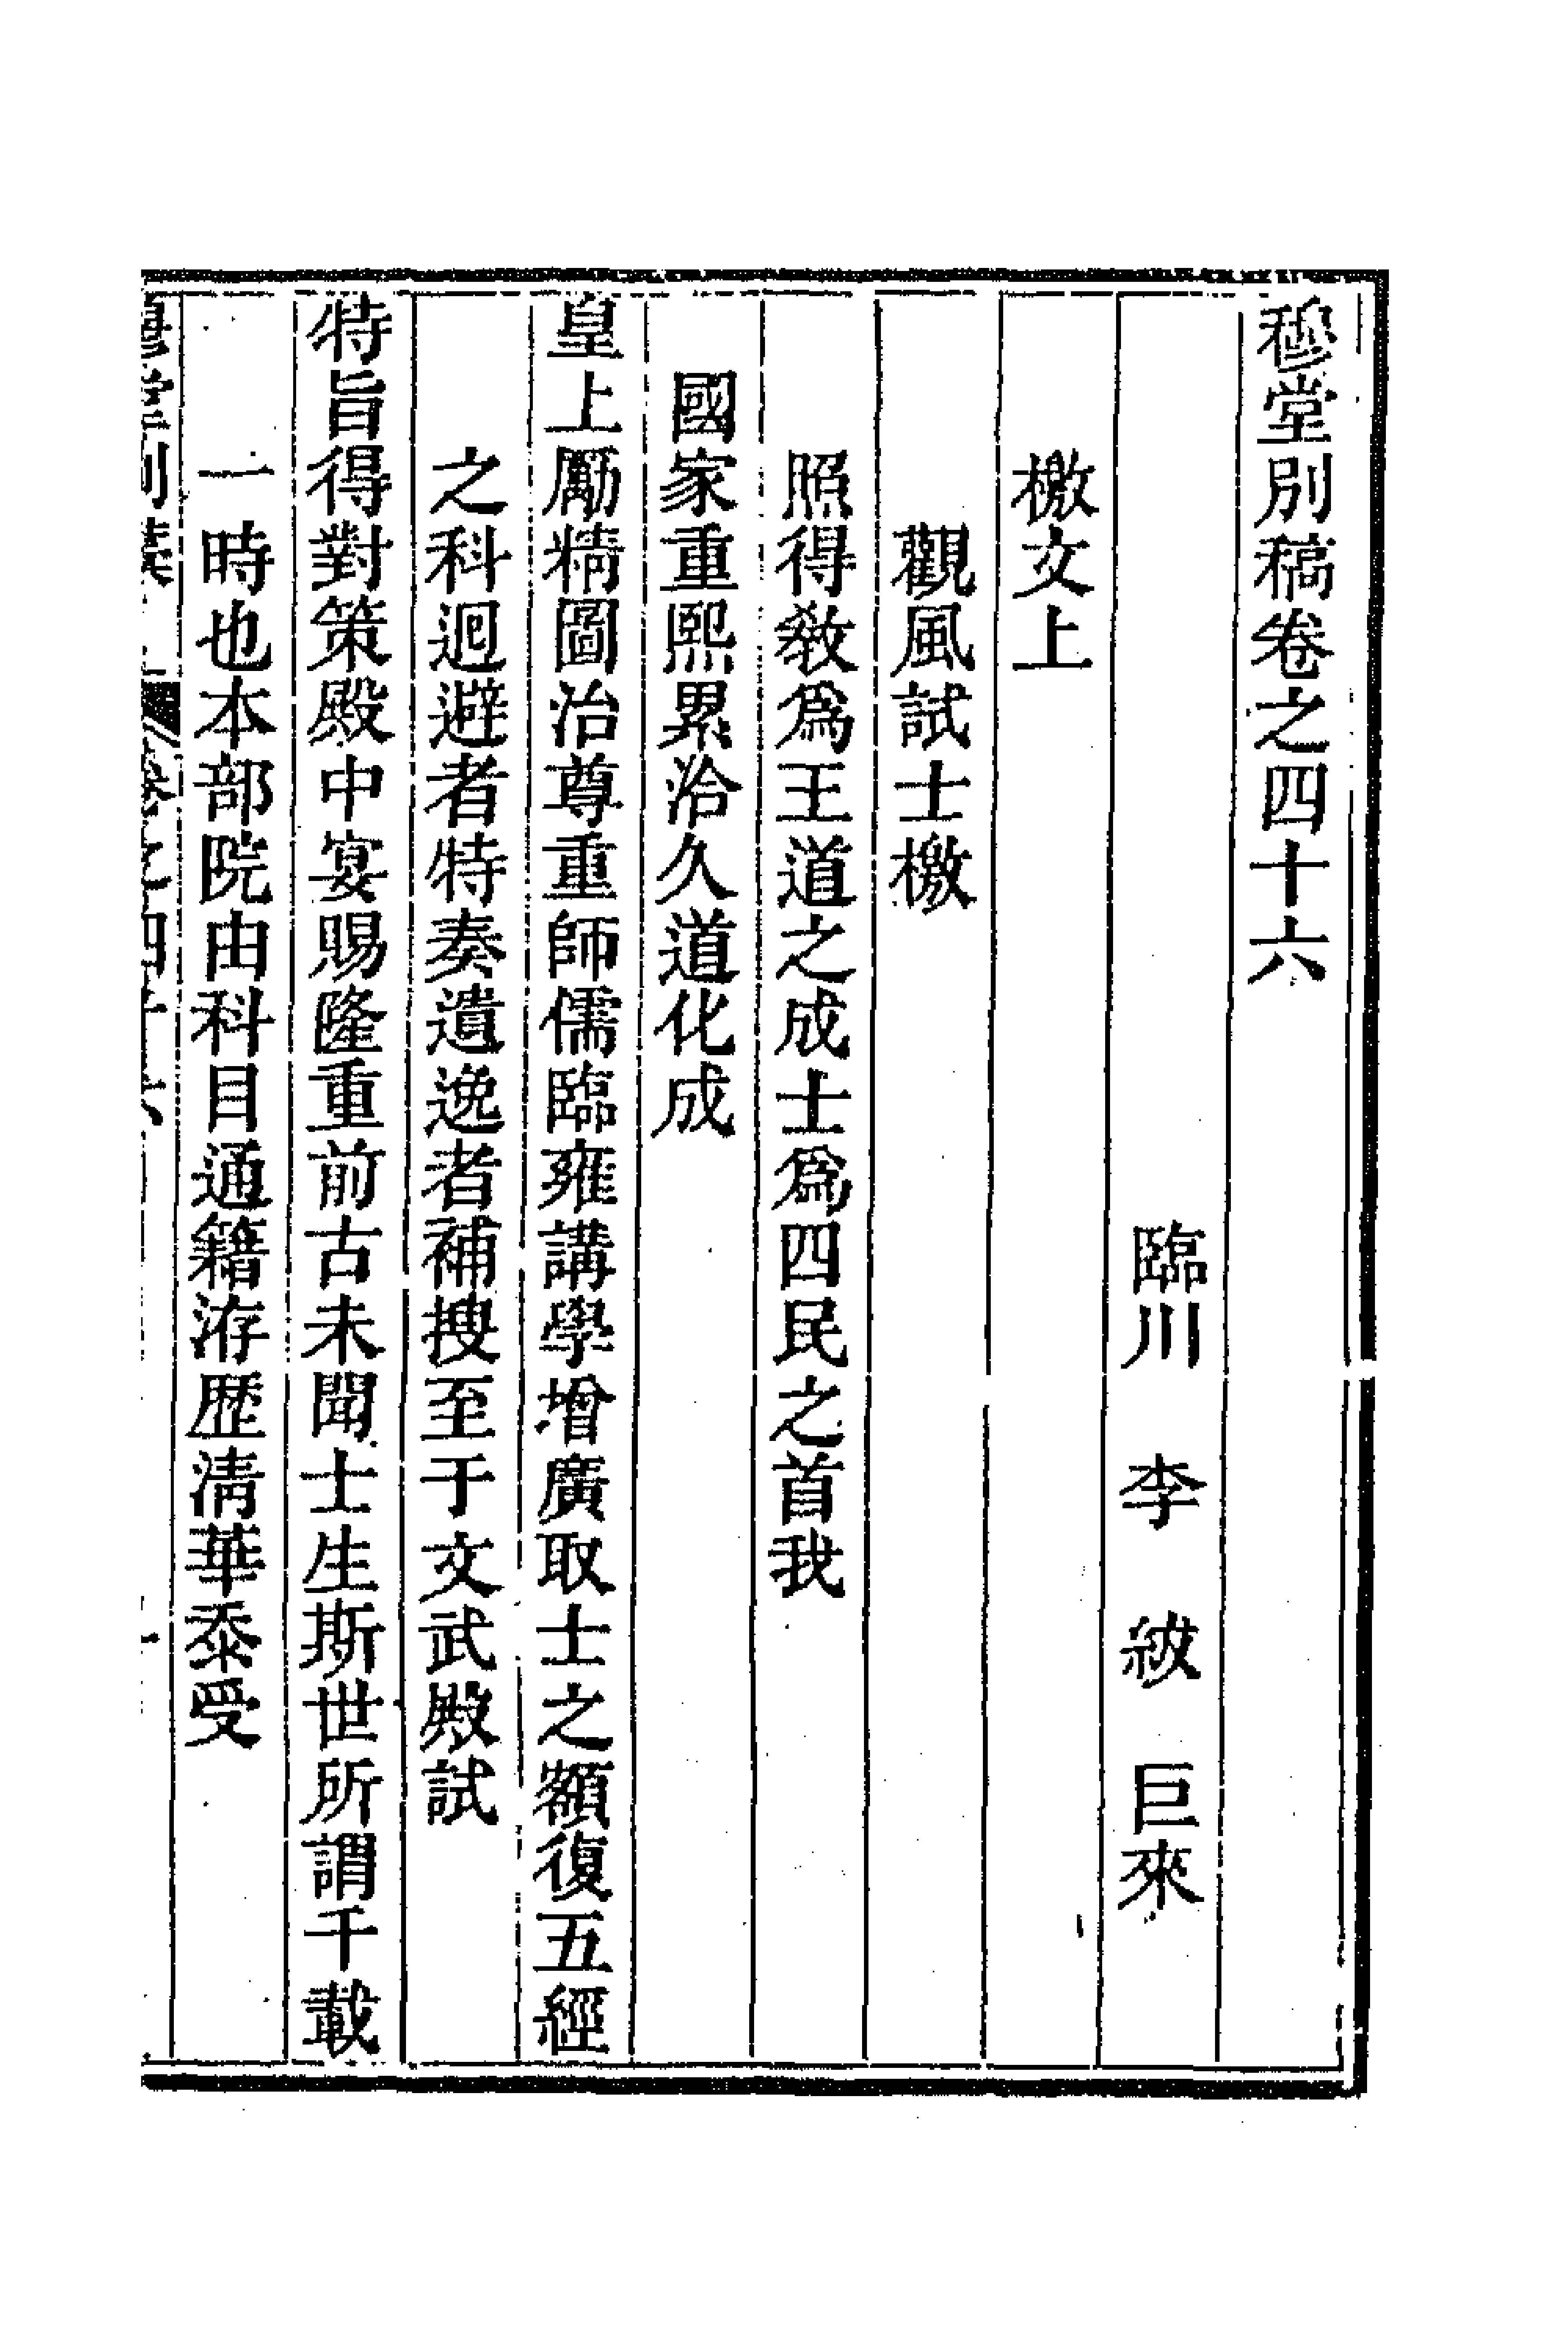 穆堂別稿卷之四十六
臨川 李 紱 巨來
檄文上
觀風試士檄
照得敎爲王道之成士爲四民之首我
國家重熙累洽久道化成
皇上勵精圖治尊重師儒臨雍講學增廣取士之額復五經
之科迴避者特奏遺逸者補搜至于文武殿試
特旨得對策殿中宴賜隆重前古未聞士生斯世所謂千載
一時也本部院由科目通籍洊歷淸華忝受